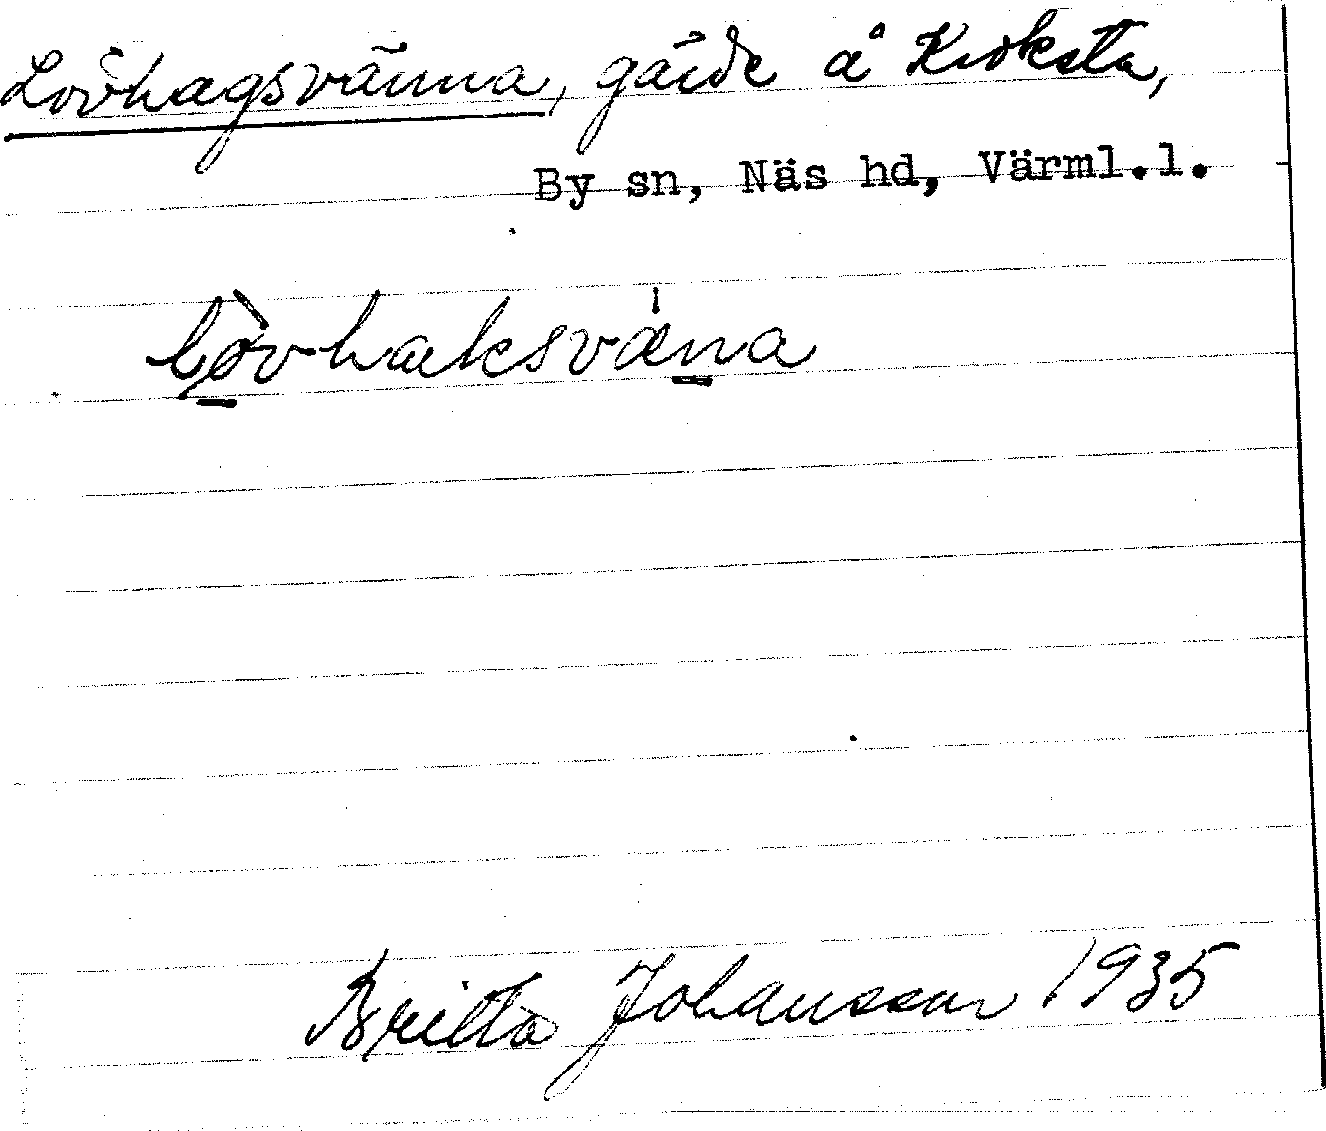 Lövhagsvänna, gärde å Kroksta,
By sn, Näs hd, Värml.l.
lø̀vhaksvæ̍na
Britta Johansson 1935